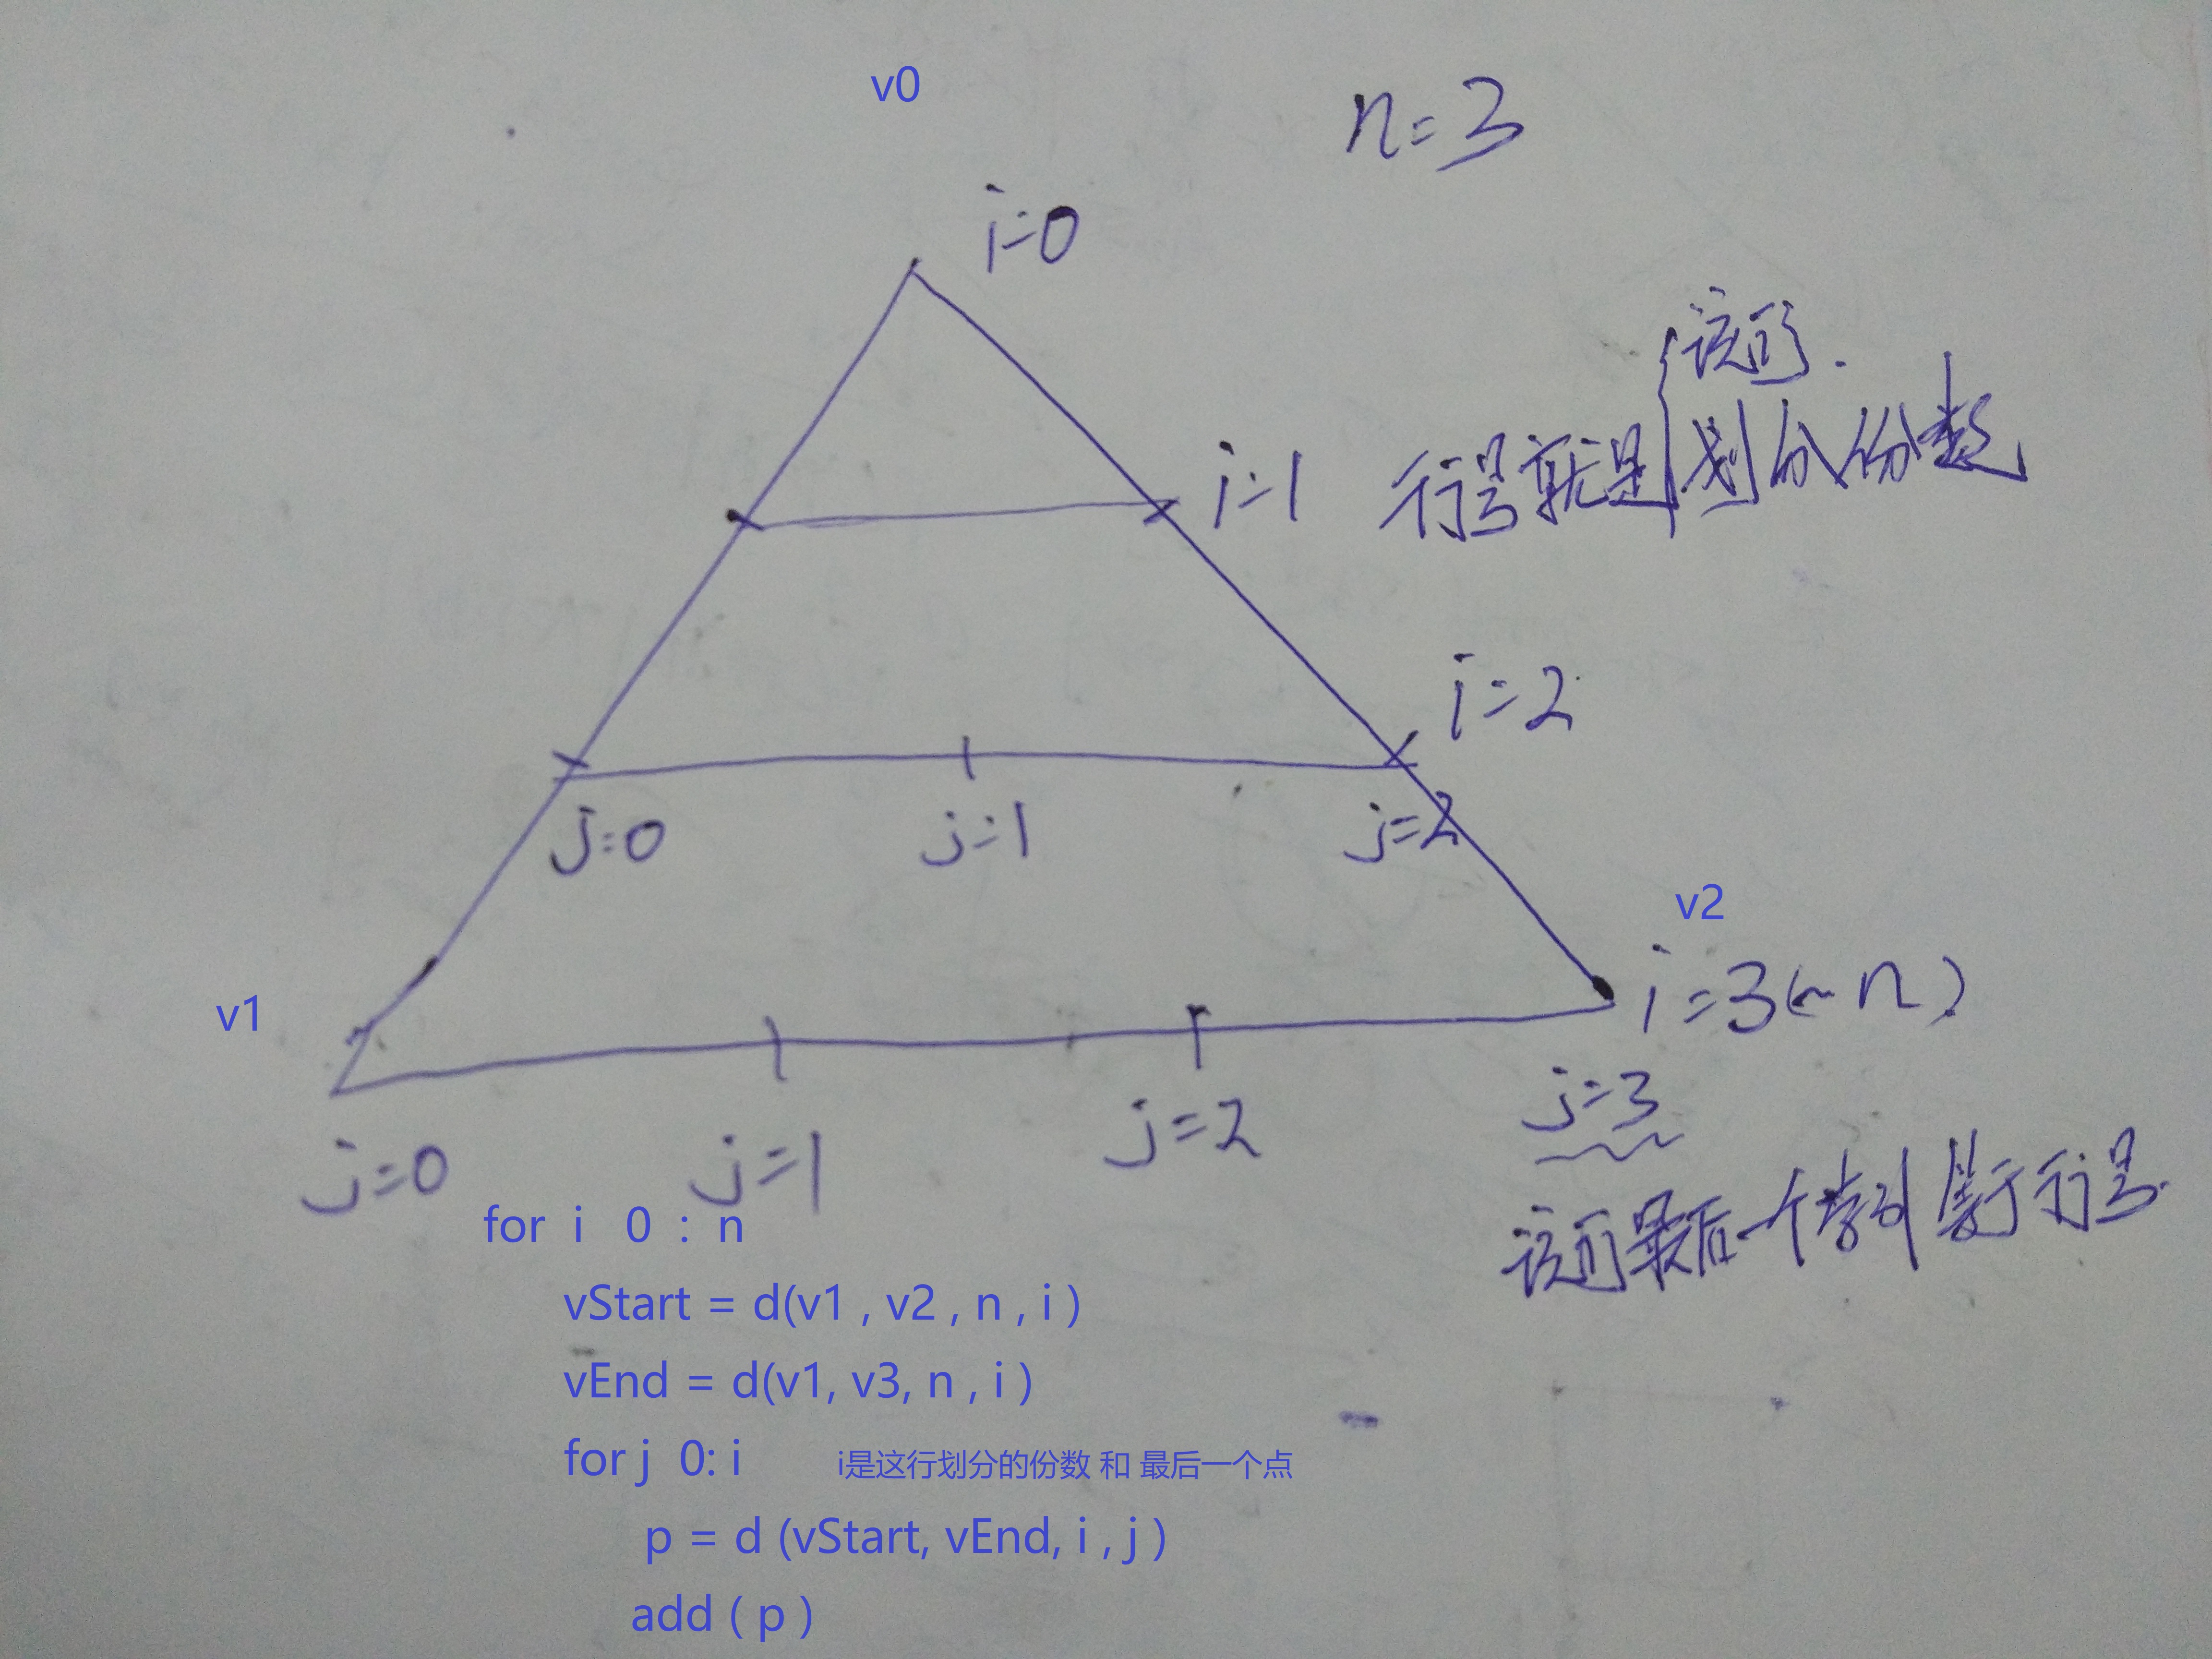 v0
n=3
i=0
该行.
i=1 行号就是 划分份数
i=2
j=0 j=1 j=2
v2
v1
i=3(~n)
j=3
j=0 j=1 j=2
该行最后一个 等于行号.
for i 0 : n
vStart = d(v1 , v2 , n , i )
vEnd = d(v1, v3, n , i )
for j 0: i i是这行划分的份数 和 最后一个点
p = d (vStart, vEnd, i , j )
add ( p )